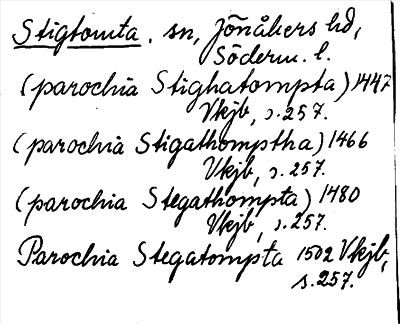 Stigtomta. sn, Jönåkers hd,
Söderm. l.
(parochia Stighatompta) 1447
Vkjb, s. 257.
(parochia Stigathomptha) 1466
Vkjb, s. 257.
(parochia Stegathompta) 1480
Vkjb, s. 257.
Parochia Stegatompta 1502 Vkjb,
s. 257.